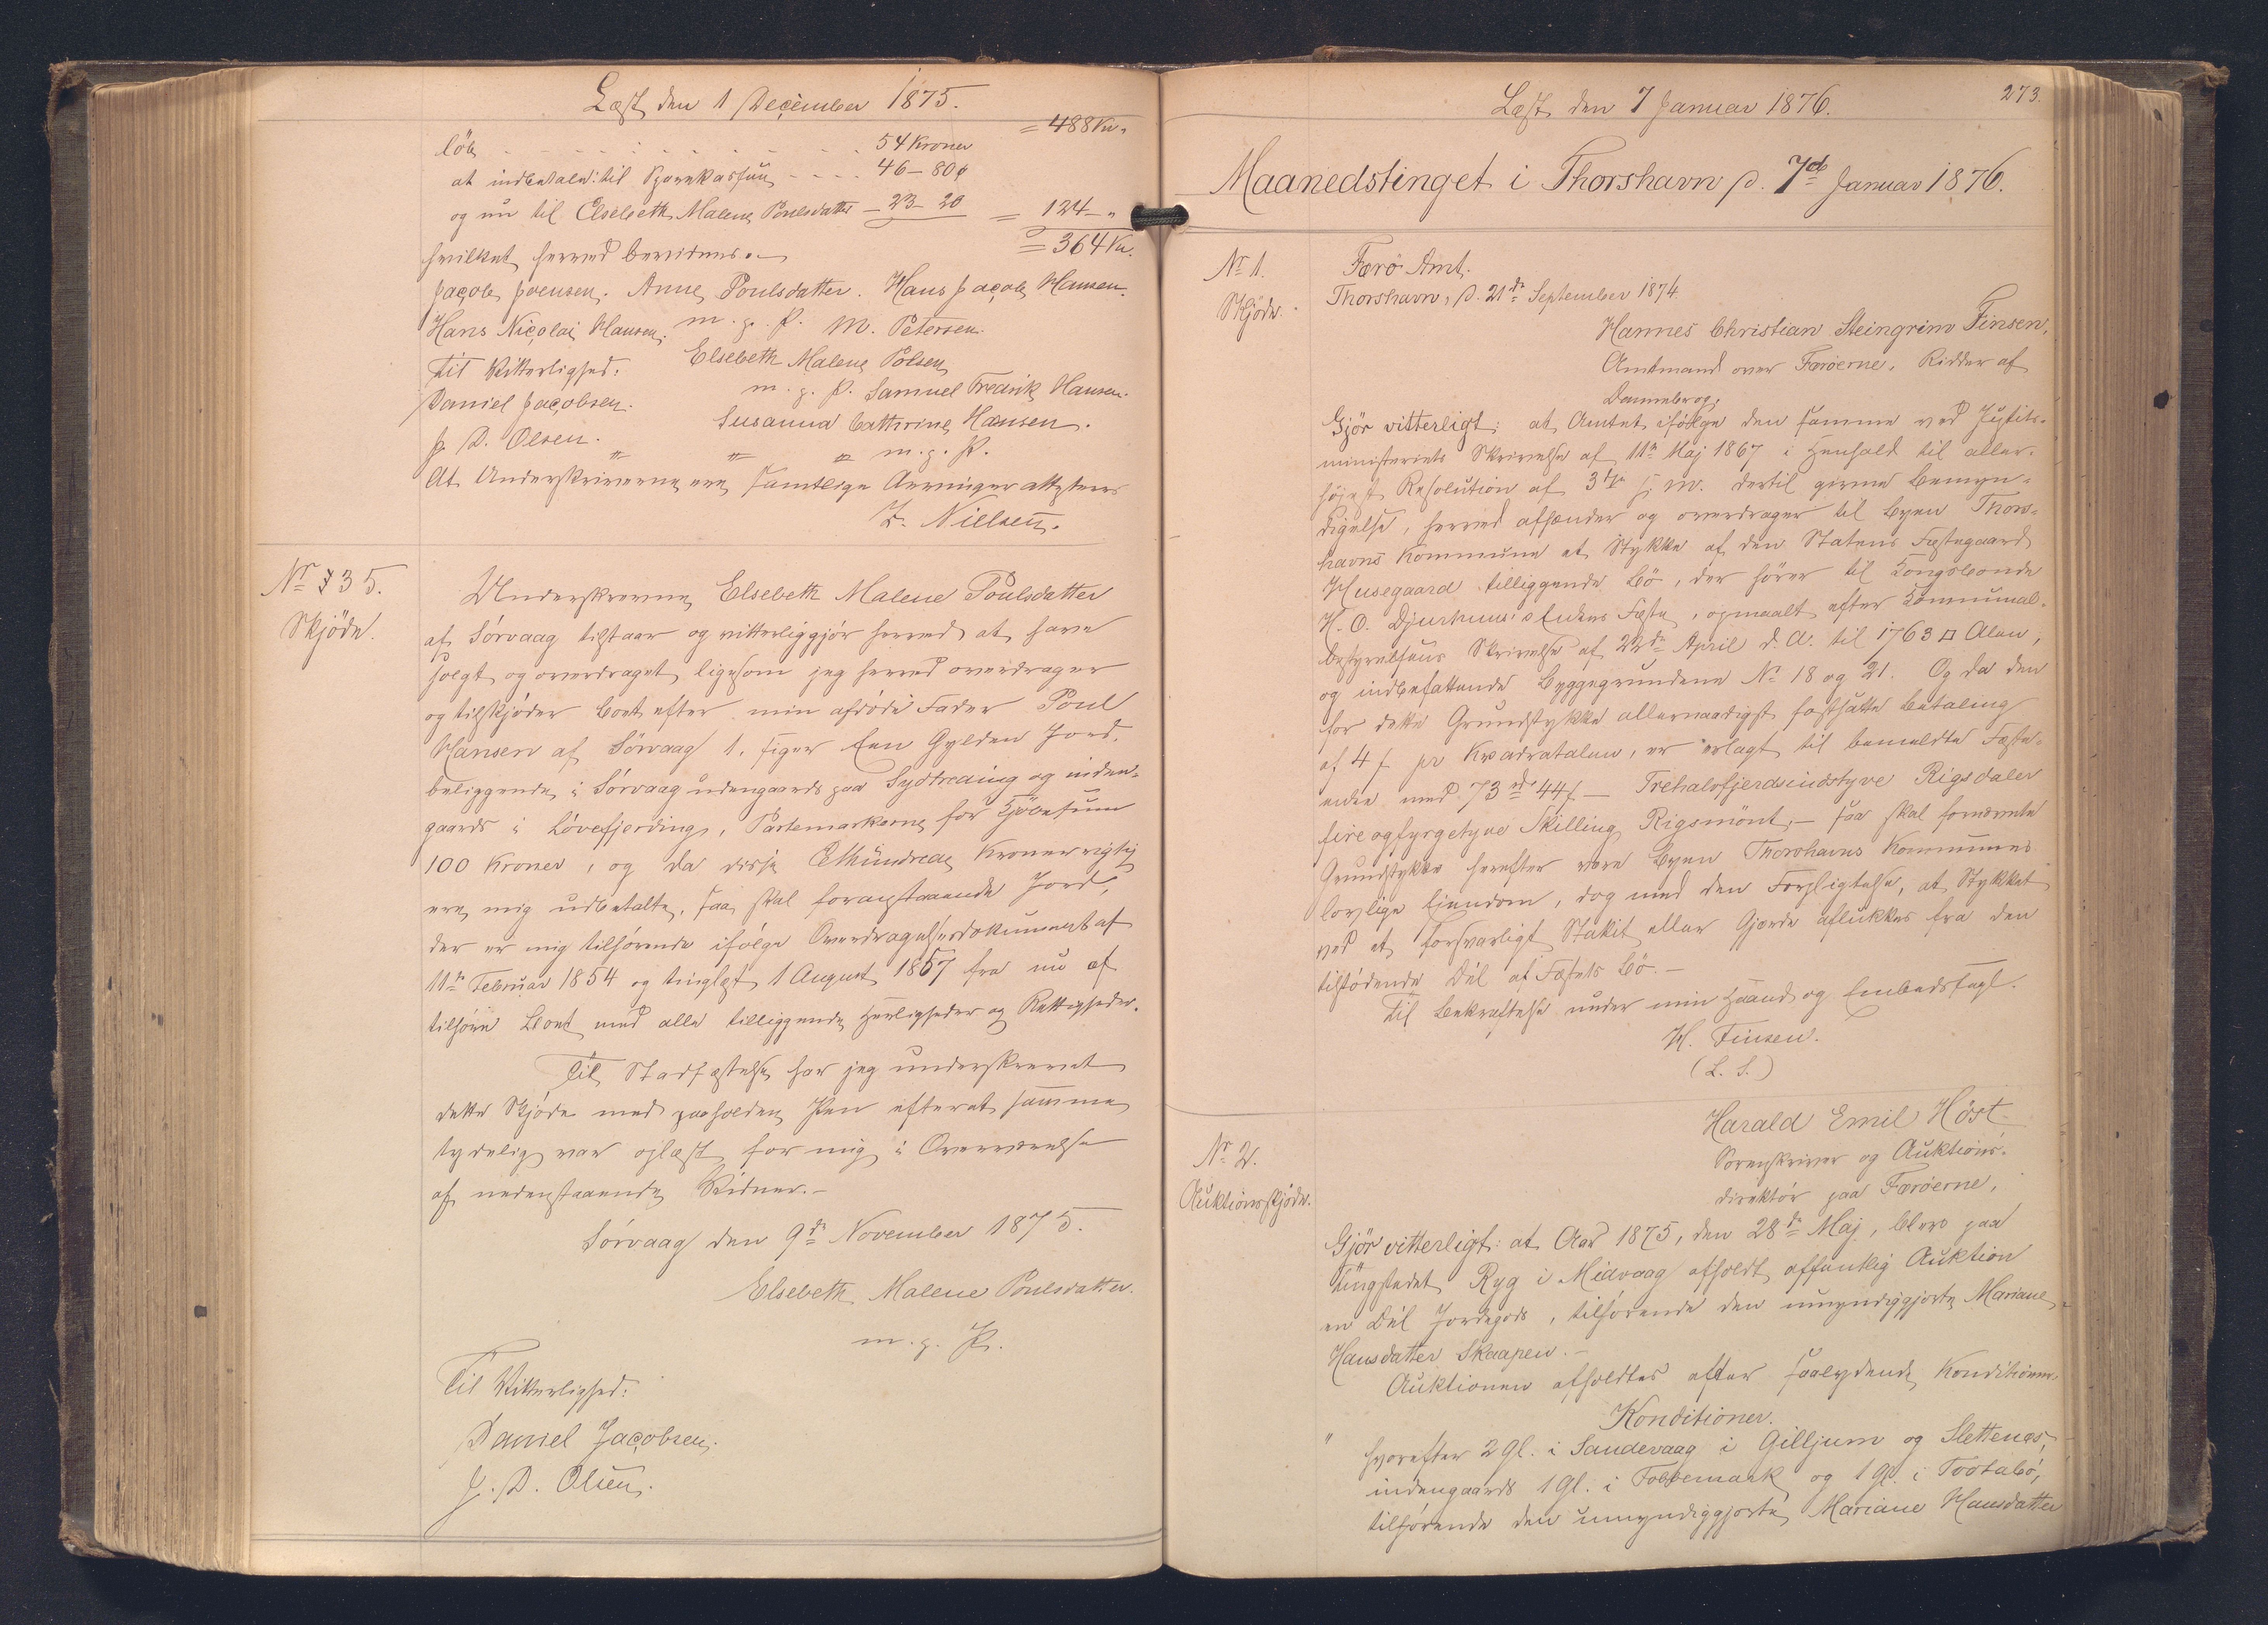 Læst den 1 December 1875.
= 488 Kr. "
løb - - - - - - - - - - 54 Kroner
at indbetale til Sparekassen - - - - 46 - 80 ø
og nu til Elsebeth Malene Poulsdatter - 23 - 20 = 124 - "
= 364 Kr.
hvilket herved bevidnes. -
Jacob Joensen. Anne Poulsdatter. Hans Jacob Hansen.
Hans Nicolai Hansen. m. p. P. M. Petersen.
Til Vitterlighed: Elsebeth Malene Polsen
Daniel Jacobsen. m. p. P. Samuel Fredrik Hansen.
J. D. Olsen. Susanna Cathrine Hansen.
" " " m. p. P.
At Underskriverne ere samtlige Arvinger attesteres
Z. Nielsen.
Nr 735.
Skjöde.
Underskrevne Elsebeth Malene Poulsdatter
af Sörvaag tilstaar og vitterliggjør herved at have
solgt og overdraget, ligesom jeg herved overdrager
og tilskjøder Boet efter min afdøde Fader Poul
Hansen af Sörvaag 1, siger Een Gylden Jord,
beliggende i Sörvaag udengaards paa Sydtreding og inden-
gaards i Løvefjerding, Partemarkerne for Kjøbesum
100 Kroner, og da disse Ethundrede Kroner rigtig
ere mig udbetalte, saa skal foranstaaende Jord,
der er mig tilhørende ifølge Overdragelsesdokument af
11te Februar 1854 og tinglæst 1 August 1857 fra nu af
tilhøre Boet med alle tilliggende Herligheder og Rettigheder.
Til Stadfæstelse har jeg underskrevet
dette Skjøde med paaholden Pen efterat samme
tydelig var oplæst for mig i Overværelse
af nedenstaaende Vidner. -
Sörvaag den 9de November 1875.
Elsebeth Malene Poulsdatter.
m. p. P.
Til Vitterlighed:
Daniel Jacobsen.
J. D. Olsen.
Læst den 7 Januar 1876.
273.
Maanedstinget i Thorshavn d. 7de Januar 1876.
Nr 1.
Skjöde.
Færö Amt.
Thorshavn, d. 21de September 1874
Hannes Christian Steingrim Finsen,
Amtmand over Færøerne, Ridder af
Dannebrog,
Gjör vitterligt: at Amtet ifølge den samme ved Justits-
ministeriets Skrivelse af 11te Maj 1867 i Henhold til aller-
højest Resolution af 3die s. M. dertil givne Bemyn-
digelse, herved afhænder og overdrager til Byen Thors-
havns Kommune et Stykke af den Statens Fæstegaard
Husegaard tilliggende Bö, der hører til Kongsbonde
H. O. Djurhuus's Enkes Fæste, opmaalt efter Kommunal-
bestyrelsens Skrivelse af 22de April d. A. til 1763 □ Alen,
og indbefattende Byggegrundene No 18 og 21. Og da den
for dette Grundstykke allernaadigst fastsatte Betaling
af 4 ſ pr Kvadratalen, er erlagt til bemeldte Fæste-
enke med 73 rd 44 ſ - Trehalvfjerdsindstyve Rigsdaler
fireogfyrgetyve Skilling Rigsmönt, - saa skal fornævnte
Grundstykke herefter være Byen Thorshavns Kommunes
lovlige Eiendom, dog med den Forpligtelse, at Stykket
ved et forsvarligt Stakit eller Gjærde aflukkes fra den
tilstødende Del af Fæstets Bö. -
Til Bekræftelse under min Haand og Embedssegl.
H. Finsen.
(L. S.)
Nr 2.
Auktionsskjöde.
Harald Emil Höst
Sorenskriver og Auktions-
direktör paa Færøerne,
Gjör vitterligt: at Aar 1875, den 28de Maj, blev paa
Tingstedet Ryg i Midvaag afholdt offentlig Auktion
en Del Jordegods, tilhørende den umyndiggjorte Mariane
Hansdatter Skaapen. -
Auktionen afholdtes efter saalydende Konditioner
Konditioner.
" hvorefter 2 Gl. i Sandevaag i Gilljum og Slettenæs,
indengaards 1 Gl. i Tobbemark og 1 Gl. i Trotabö,
tilhørende den umyndiggjorte Mariane Hansdatter